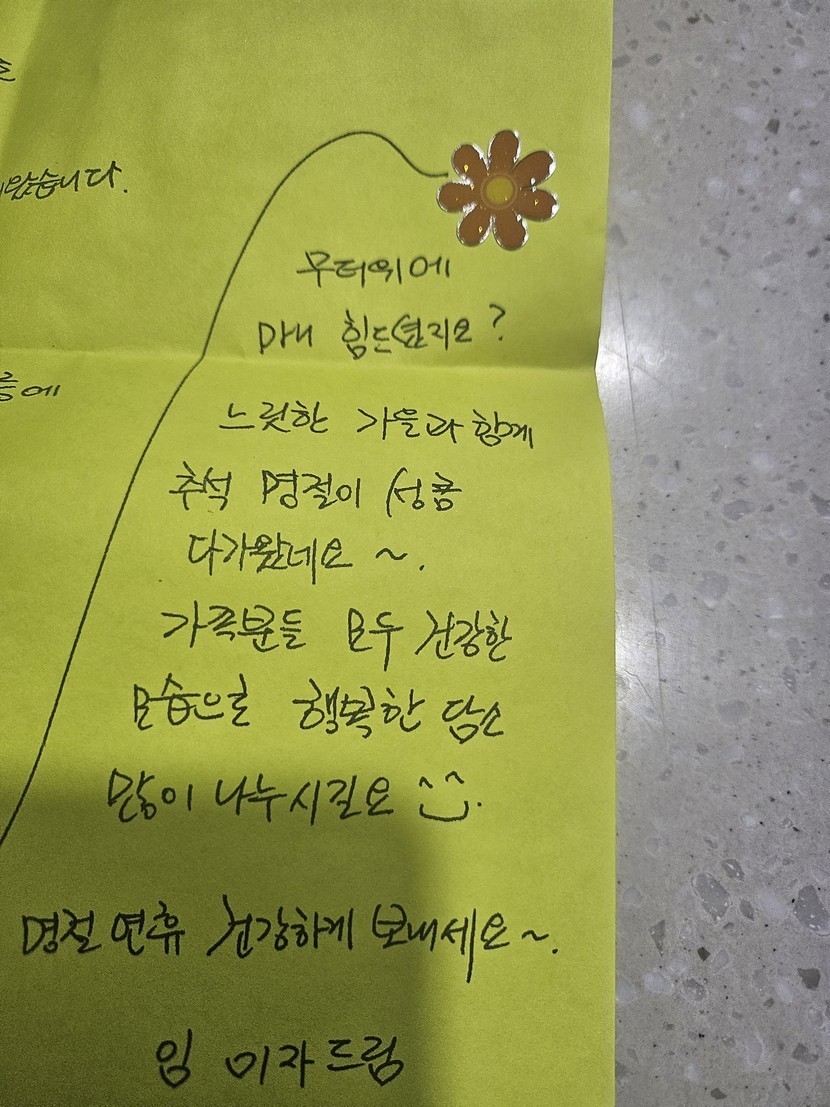 습니다.
무더위에
마니 힘드셨지요?
에
느릿한 가을과 함께
추석 명절이 성큼
다가왔네요 ~.
가족분들 모두 건강한
모습으로 행복한 담소
많이 나누시길요 ^^.
명절 연휴 건강하게 보내세요~.
임 미자 드림